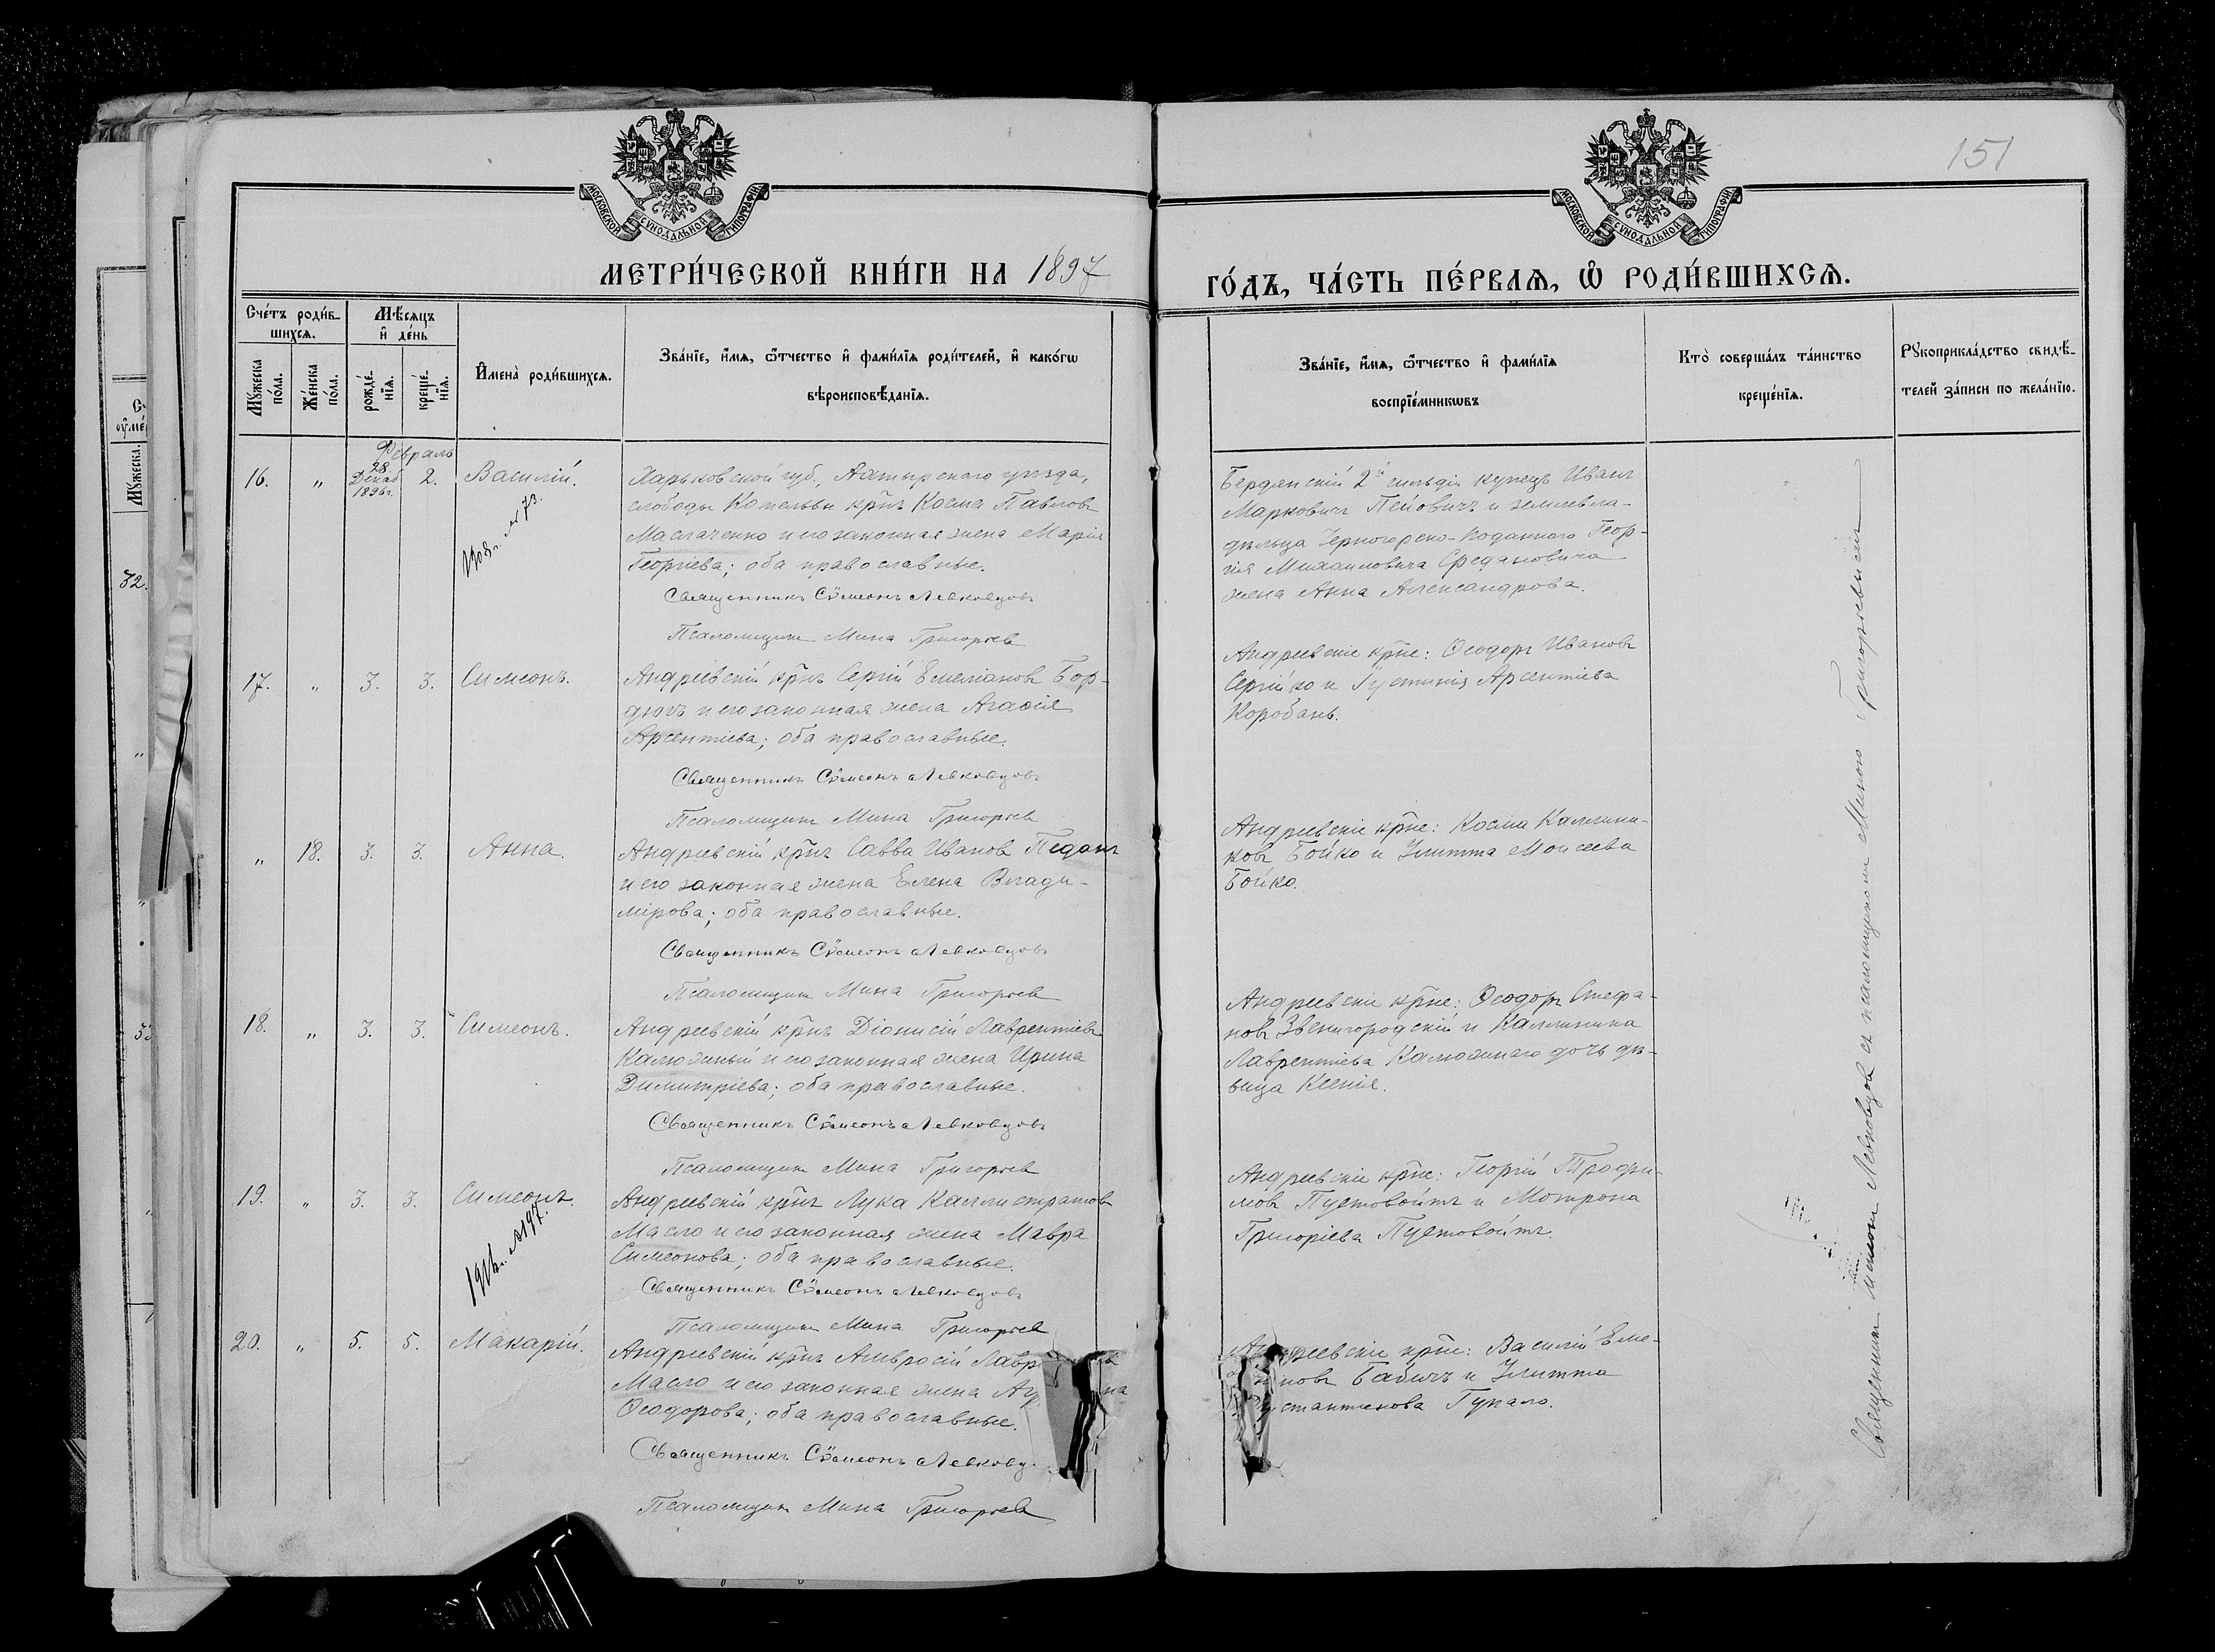 151
МОСКОВСКОЙ СѴНОДАЛЬНОЙ ТИПОГРАФІИ
МОСКОВСКОЙ СѴНОДАЛЬНОЙ ТИПОГРАФІИ
МЕТРИ́ЧЕСКОЙ КНИ́ГИ НА 1897
ГО́ДЪ, ЧА́СТЬ ПЕ́РВАѦ, Ѡ҆ РОДИ́ВШИХСѦ.
Сче́тъ роди́в-
шихсѧ.
Мꙋ́жеска
по́ла.
Же́нска
по́ла.
Мѣ́сѧцъ
и҆ де́нь
рожде́-
нїѧ.
креще́-
нїѧ.
И҆мена̀ роди́вшихсѧ.
Зва́нїе, и҆́мѧ, ѻ҆́тчество и҆ фами́лїѧ роди́телей, и҆ како́гѡ
вѣроисповѣ́данїѧ.
Зва́нїе, и҆́мѧ, ѻ҆́тчество и҆ фами́лїѧ
воспрїе́мникѡвъ
Кто̀ соверша́лъ та́инство
креще́нїѧ.
Рꙋкоприкла́дство свидѣ́-
телей за́писи по жела́нїю.
Февраль
16. " 28. Декаб 1896 г. 2. Василій.
Харьковской губ., Ахтырскаго уѣзда,
слободы Котельвы крнъ Косма Павловъ
Маслаченко и его законная жена Марія
Георгіева; оба православные.
Священникъ Сѵмеонъ Левковцовъ
Псаломщикъ Мина Григорьев
Бердянскій 2й гильдіи купецъ Иванъ
Марковичъ Пейовичъ и землевла-
дѣльца Черногорско-подданнаго Геор-
гія Михаиловича Средановича
жена Анна Александрова.
17. " 3. 3. Симеонъ.
Андреевскій крнъ Сергій Емеліановъ Бор-
дюгъ и его законная жена Агаѳія
Арсентіева; оба православные.
Священникъ Сѵмеонъ Левковцовъ
Псаломщикъ Мина Григорьев
Андреевскіе крне: Ѳеодоръ Ивановъ
Сергійко и Іустинія Арсентіева
Коробань.
" 18. 3. 3. Анна.
Андреевскій крнъ Савва Ивановъ Педанъ
и его законная жена Елена Влади-
мірова; оба православные.
Священникъ Сѵмеонъ Левковцовъ
Псаломщикъ Мина Григорьев
Андреевскіе крне: Косма Каллини-
ковъ Бойко и Улитта Моисеева
Бойко.
18. " 3. 3. Симеонъ.
Андреевскій крнъ Діонисій Лаврентіевъ
Калюжный и его законная жена Ирина
Димитріева; оба православные.
Священникъ Сѵмеонъ Левковцовъ
Псаломщикъ Мина Григорьев
Андреевскіе крне: Ѳеодоръ Стефа-
новъ Звенигородскій и Каллиника
Лаврентіева Калюжнаго дочь дѣ-
вица Ксенія.
19. " 3. 3. Симеонъ.
Андреевскій крнъ Лука Каллистратовъ
Масло и его законная жена Мавра
Симеонова; оба православные.
Священникъ Сѵмеонъ Левковцовъ
Псаломщикъ Мина Григорьев
Андреевскіе крне: Георгій Трофи-
мовъ Пустовойтъ и Мотрона
Григоріева Пустовойтъ.
20. " 5. 5. Макарій.
Андреевскій крнъ Амвросій Лавр
Масло и его законная жена
Ѳеодорова; оба православные.
Священникъ Сѵмеонъ Левковц
Псаломщикъ Мина Григорьев
Василій Еме-
новъ Бабичъ и Улитта
стантинова Гупало.
Левковцов съ псаломщиком Миною Григорьевым
32.